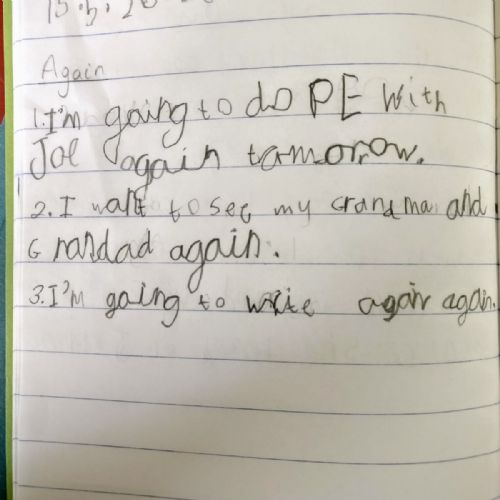 Again
1. I'm going to do PE with
Joe again tamorrow.
2. I want to see my Grandma and
Grandad again.
3. I'm going to write again again.